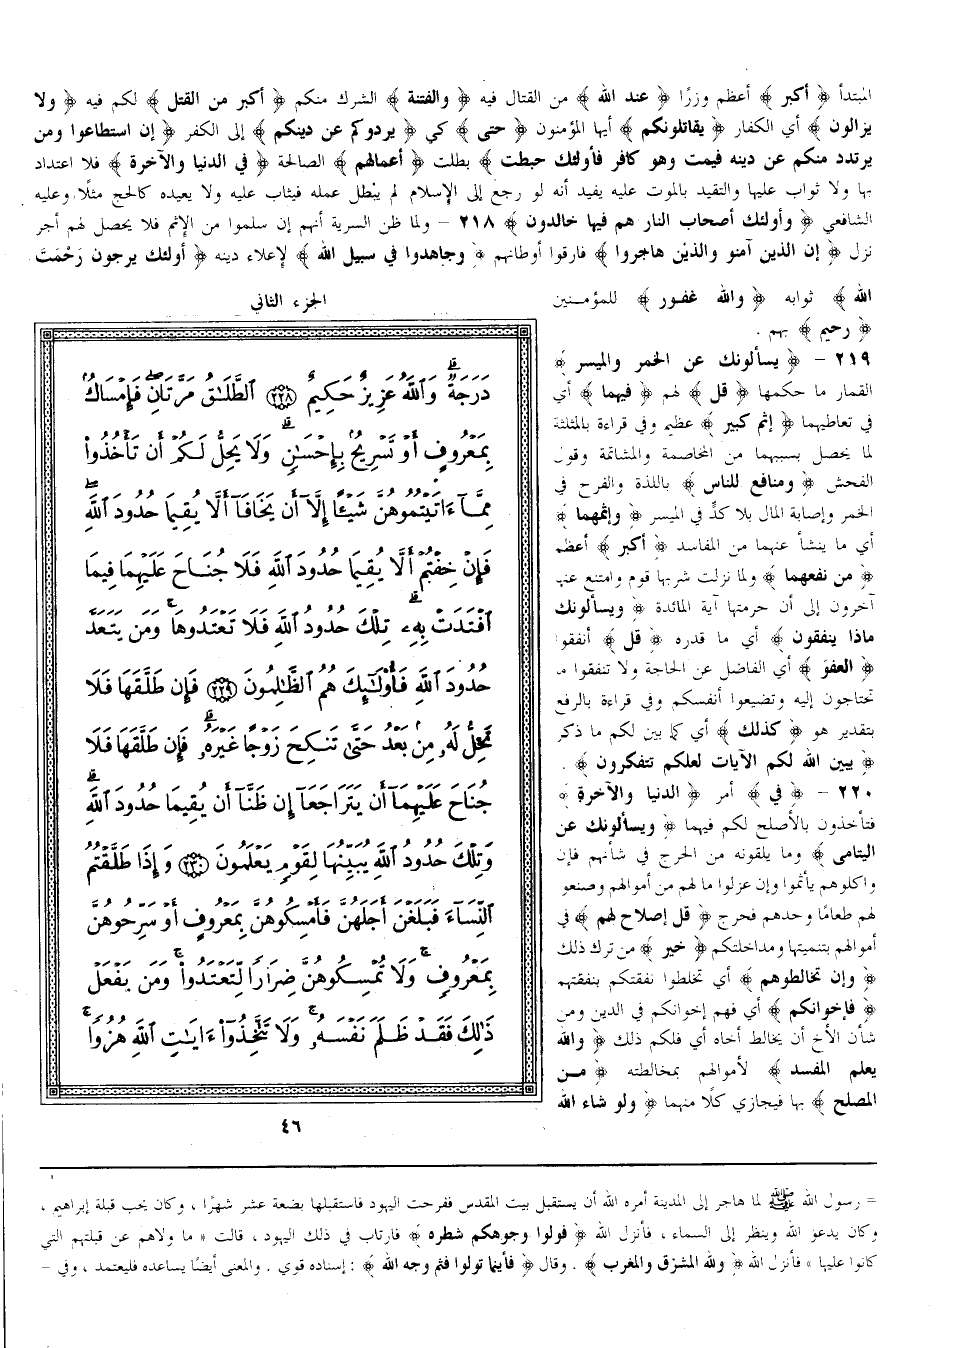 المبتدأ ﴿ أكبر ﴾ أعظم وزرًا ﴿ عند الله ﴾ من القتال فيه ﴿ والفتنة ﴾ الشرك منكم ﴿ أكبر من القتل ﴾ لكم فيه ﴿ ولا
يزالون ﴾ أي الكفار ﴿ يقاتلونكم ﴾ أيها المؤمنون ﴿ حتى ﴾ كي ﴿ يردوكم عن دينكم ﴾ إلى الكفر ﴿ إن استطاعوا ومن
يرتدد منكم عن دينه فيمت وهو كافر فأولئك حبطت ﴾ بطلت ﴿ أعمالهم ﴾ الصالحة ﴿ في الدنيا والآخرة ﴾ فلا اعتداد
بها ولا ثواب عليها والتقيد بالموت عليه يفيد أنه لو رجع إلى الإسلام لم يبْطل عمله فيثاب عليه ولا يعيده كالحج مثلًا وعليه
الشافعي ﴿ وأولئك أصحاب النار هم فيها خالدون ﴾ ٢١٨ - ولما ظن السرية أنهم إن سلموا من الإثم فلا يحصل لهم أجر
نزل ﴿ إن الذين آمنو والذيْن هاجروا ﴾ فارقوا أوطانهم ﴿ وجاهدوا في سبيل الله ﴾ لإعلاء دينه ﴿ أولئك يرجون رَحْمَتَ
الله ﴾ ثوابه ﴿ والله غفور ﴾ للمؤمنين
﴿ رحيم ﴾ بهم .
٢١٩ - ﴿ يسألونك عن الخمر والميسر ﴾
القمار ما حكمها ﴿ قل ﴾ لهم ﴿ فيهما ﴾ أي
في تعاطيهما ﴿ إثم كبير ﴾ عظيم وفي قراءة بالمثلثة
لما يحصل بسببهما من المخاصمة والمشاتمة وقول
الفحش ﴿ ومنافع للناس ﴾ باللذة والفرح في
الخمر وإصابة المال بلا كدٍّ في الميسر ﴿ وإثمهما ﴾
أي ما ينشأ عنهما من المفاسد ﴿ أكبر ﴾ أعظم
﴿ من نفعهما ﴾ ولما نزلت شربها قوم وامتنع عنها
آخرون إلى أن حرمتها آية المائدة ﴿ ويسألونك
ماذا ينفقون ﴾ أي ما قدره ﴿ قل ﴾ أنفقوا
﴿ العفوَ ﴾ أي الفاضل عن الحاجة ولا تنفقوا ما
تحتاجون إليه وتضيعوا أنفسكم وفي قراءة بالرفع
بتقدير هو ﴿ كذلك ﴾ أي كما بين لكم ما ذكر
﴿ يبين الله لكم الآيات لعلكم تتفكرون ﴾ .
٢٢٠ - ﴿ في ﴾ أمر ﴿ الدنيا والآخرة ﴾
فتأخذون بالأصلح لكم فيهما ﴿ ويسألونك عن
اليتامى ﴾ وما يلقونه من الحرج في شأنهم فإن
واكلوهم يأثموا وإن عزلوا ما لهم من أموالهم وصنعو
لهم طعامًا وحدهم فحرج ﴿ قل إصلاح لهم ﴾ في
أموالهم بتنميتها ومداخلتكم ﴿ خير ﴾ من ترك ذلك
﴿ وإن تخالطوهم ﴾ أي تخلطوا نفقتكم بنفقتهم
﴿ فإخوانكم ﴾ أي فهم إخوانكم في الدين ومن
شأن الأخ أن يخالط أخاه أي فلكم ذلك ﴿ والله
يعلم المفسد ﴾ لأموالهم بمخالطته ﴿ من
المصلح ﴾ بها فيجازي كلًا منهما ﴿ ولو شاء الله
الجزء الثاني
دَرَجَةٌ ۗ وَٱللَّهُ عَزِيزٌ حَكِيمٌ ﴿٢٢٨﴾ ٱلطَّلَـٰقُ مَرَّتَانِ ۖ فَإِمْسَاكٌۢ
بِمَعْرُوفٍ أَوْ تَسْرِيحٌۢ بِإِحْسَـٰنٍ ۗ وَلَا يَحِلُّ لَكُمْ أَن تَأْخُذُوا۟
مِمَّآ ءَاتَيْتُمُوهُنَّ شَيْـًٔا إِلَّآ أَن يَخَافَآ أَلَّا يُقِيمَا حُدُودَ ٱللَّهِ ۖ
فَإِنْ خِفْتُمْ أَلَّا يُقِيمَا حُدُودَ ٱللَّهِ فَلَا جُنَاحَ عَلَيْهِمَا فِيمَا
ٱفْتَدَتْ بِهِۦ ۗ تِلْكَ حُدُودُ ٱللَّهِ فَلَا تَعْتَدُوهَا ۚ وَمَن يَتَعَدَّ
حُدُودَ ٱللَّهِ فَأُو۟لَـٰٓئِكَ هُمُ ٱلظَّـٰلِمُونَ ﴿٢٢٩﴾ فَإِن طَلَّقَهَا فَلَا
تَحِلُّ لَهُۥ مِنۢ بَعْدُ حَتَّىٰ تَنكِحَ زَوْجًا غَيْرَهُۥ ۗ فَإِن طَلَّقَهَا فَلَا
جُنَاحَ عَلَيْهِمَآ أَن يَتَرَاجَعَآ إِن ظَنَّآ أَن يُقِيمَا حُدُودَ ٱللَّهِ ۗ
وَتِلْكَ حُدُودُ ٱللَّهِ يُبَيِّنُهَا لِقَوْمٍ يَعْلَمُونَ ﴿٢٣٠﴾ وَإِذَا طَلَّقْتُمُ
ٱلنِّسَآءَ فَبَلَغْنَ أَجَلَهُنَّ فَأَمْسِكُوهُنَّ بِمَعْرُوفٍ أَوْ سَرِّحُوهُنَّ
بِمَعْرُوفٍ ۚ وَلَا تُمْسِكُوهُنَّ ضِرَارًا لِّتَعْتَدُوا۟ ۚ وَمَن يَفْعَلْ
ذَٰلِكَ فَقَدْ ظَلَمَ نَفْسَهُۥ ۚ وَلَا تَتَّخِذُوٓا۟ ءَايَـٰتِ ٱللَّهِ هُزُوًا ۚ
٤٦
= رسول الله ﷺ لما هاجر إلى المدينة أمره الله أن يستقبل بيت المقدس ففرحت اليهود فاستقبلها بضعة عشر شهرًا ، وكان يحب قبلة إبراهيم ،
وكان يدعو الله وينظر إلى السماء ، فأنزل الله ﴿ فولوا وجوهكم شطره ﴾ فارتاب في ذلك اليهود ، قالت « ما ولاهم عن قبلتهم التي
كانوا عليها » فأنزل الله ﴿ ولله المشرق والمغرب ﴾ . وقال ﴿ فأينما تولوا فثم وجه الله ﴾ : إسناده قوي . والمعنى أيضًا يساعده فليعتمد ، وفي -